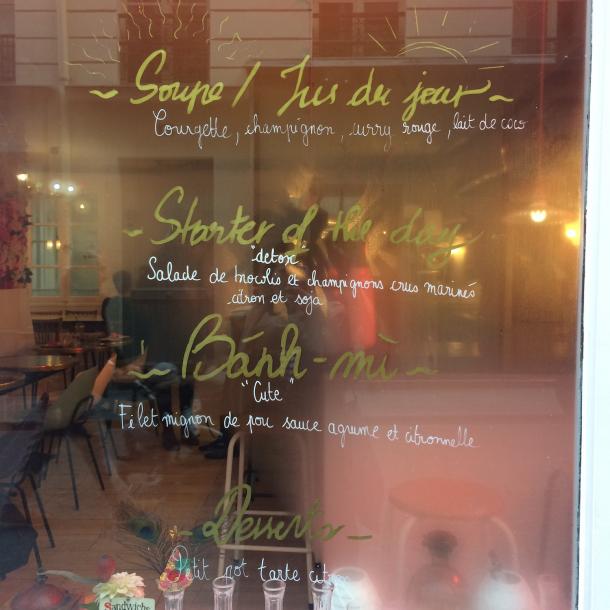 ~ Soupe / Jus du jour ~
Courgette, champignon, curry rouge, lait de coco
~ Starter of the day ~
"detox"
Salade de brocolis et champignons crus marinés
citron et soja
~ Bánh-mì ~
"Cute"
Filet mignon de porc sauce agrume et citronnelle
~ Desserts ~
Petit pot tarte citron
Sandwichs